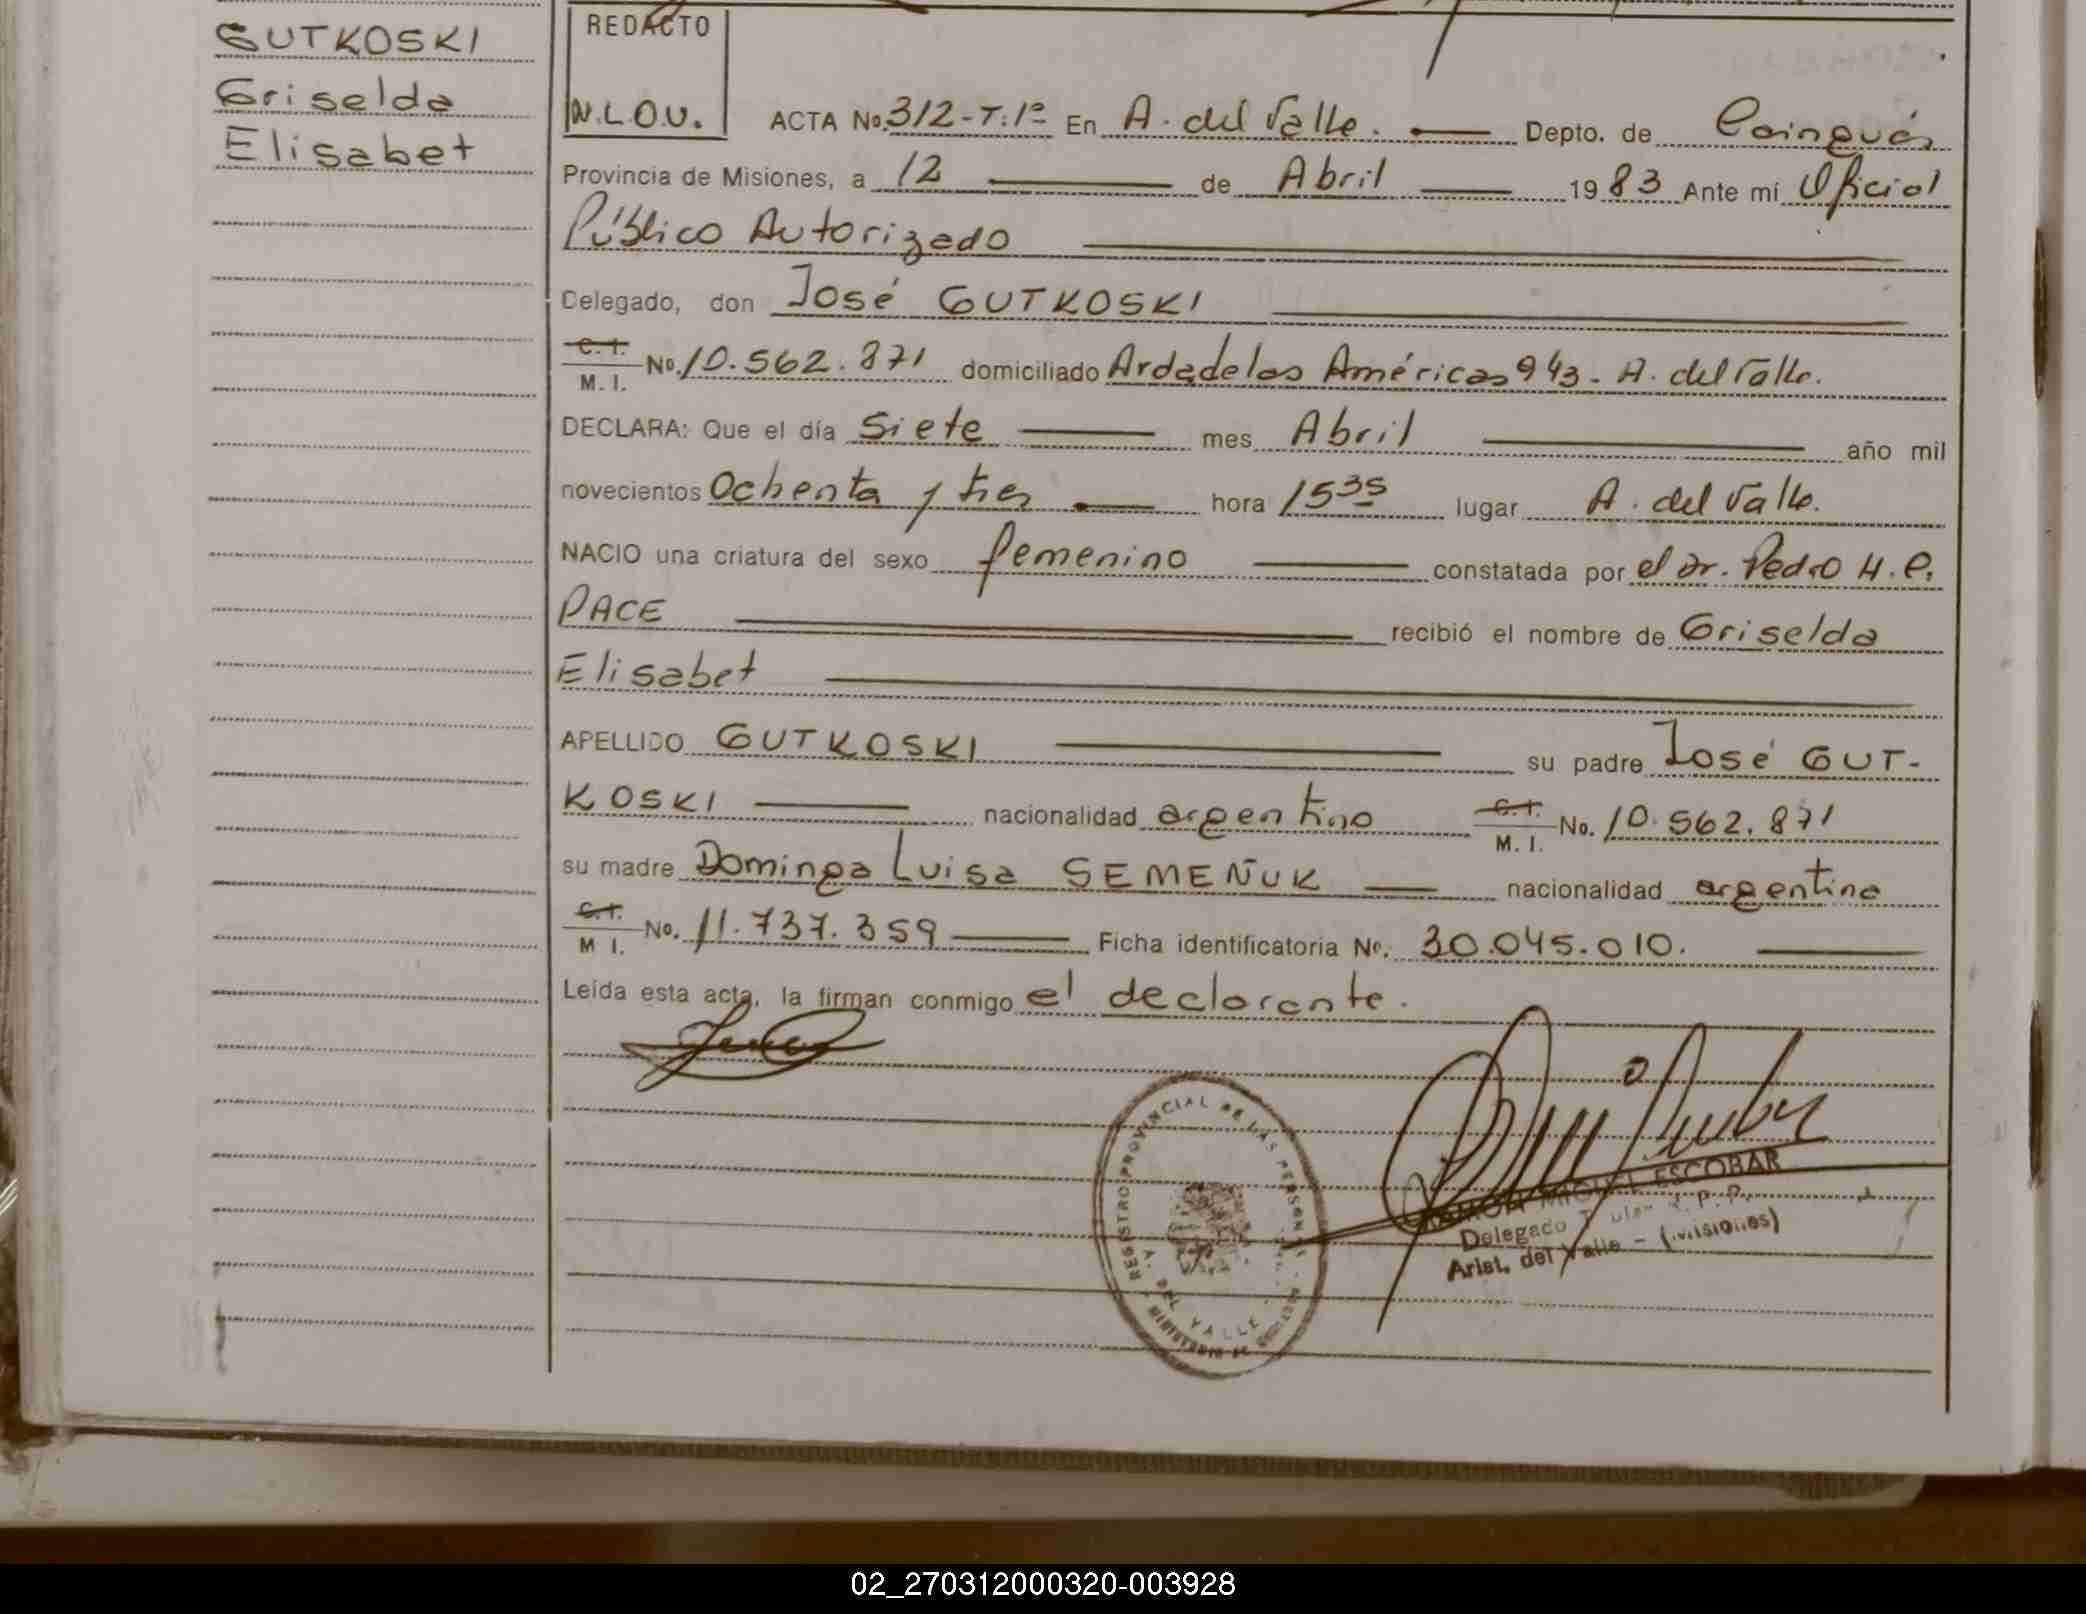 GUTKOSKI
Griselda
Elisabet
REDACTO
N.L.O.V.
ACTA No. 312-T:1º En A. del Valle. Depto. de Cainguás
Provincia de Misiones, a 12 de Abril 1983 Ante mí Oficial
Público Autorizado
Delegado, don José GUTKOSKI
C.I. M.I. No. 10.562.871 domiciliado Avda de las Américas 943. A. del Valle.
DECLARA: Que el día Siete mes Abril año mil
novecientos Ochenta y tres hora 15 35 lugar A. del Valle.
NACIO una criatura del sexo femenino constatada por el Dr. Pedro H. P.
PACE recibió el nombre de Griselda
Elisabet
APELLIDO GUTKOSKI su padre José GUT-
KOSKI nacionalidad argentino C.I. M.I. No. 10.562.871
su madre Dominga Luisa SEMEÑUK nacionalidad argentina
C.I. M I. No. 11.737.359 Ficha identificatoria No. 30.045.010.
Leída esta acta, la firman conmigo el declarante.
REGISTRO PROVINCIAL DE LAS PERSONAS
A. DEL VALLE
RAMON MIGUEL ESCOBAR
Delegado Titular R. P. P.
Arist. del Valle - (Misiones)
02_270312000320-003928